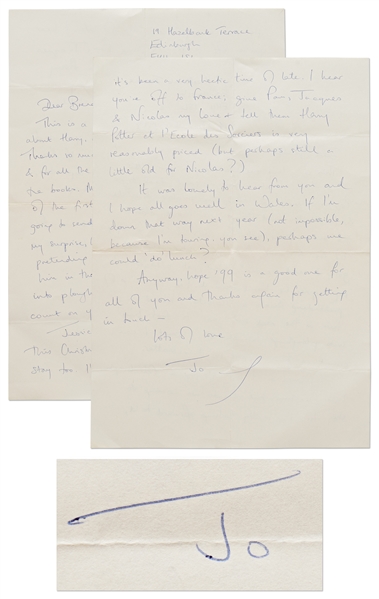 19 Hazelbank Terrace
Edinburgh
Dear
This is a
about Harry.
Thanks so
& for all the
the books.
of the first
going to send
my surprise,
pretending
him in the
into
count on
Jessi
This Christ
stay too
It's been a very hectic time of late. I hear
you're off to France, give Pam, Jacques
& Nicolas my love & tell them Harry
Potter et l'Ecole des Sorciers is very
reasonably priced (but perhaps still a
little old for Nicolas?)
It was lovely to hear from you and
I hope all goes well in Wales. If I'm
down that way next year (not impossible,
because I'm touring, you see), perhaps we
could 'do lunch'?
Anyway, hope '99 is a good one for
all of you and thanks again for getting
in touch -
lots of love
Jo
Jo